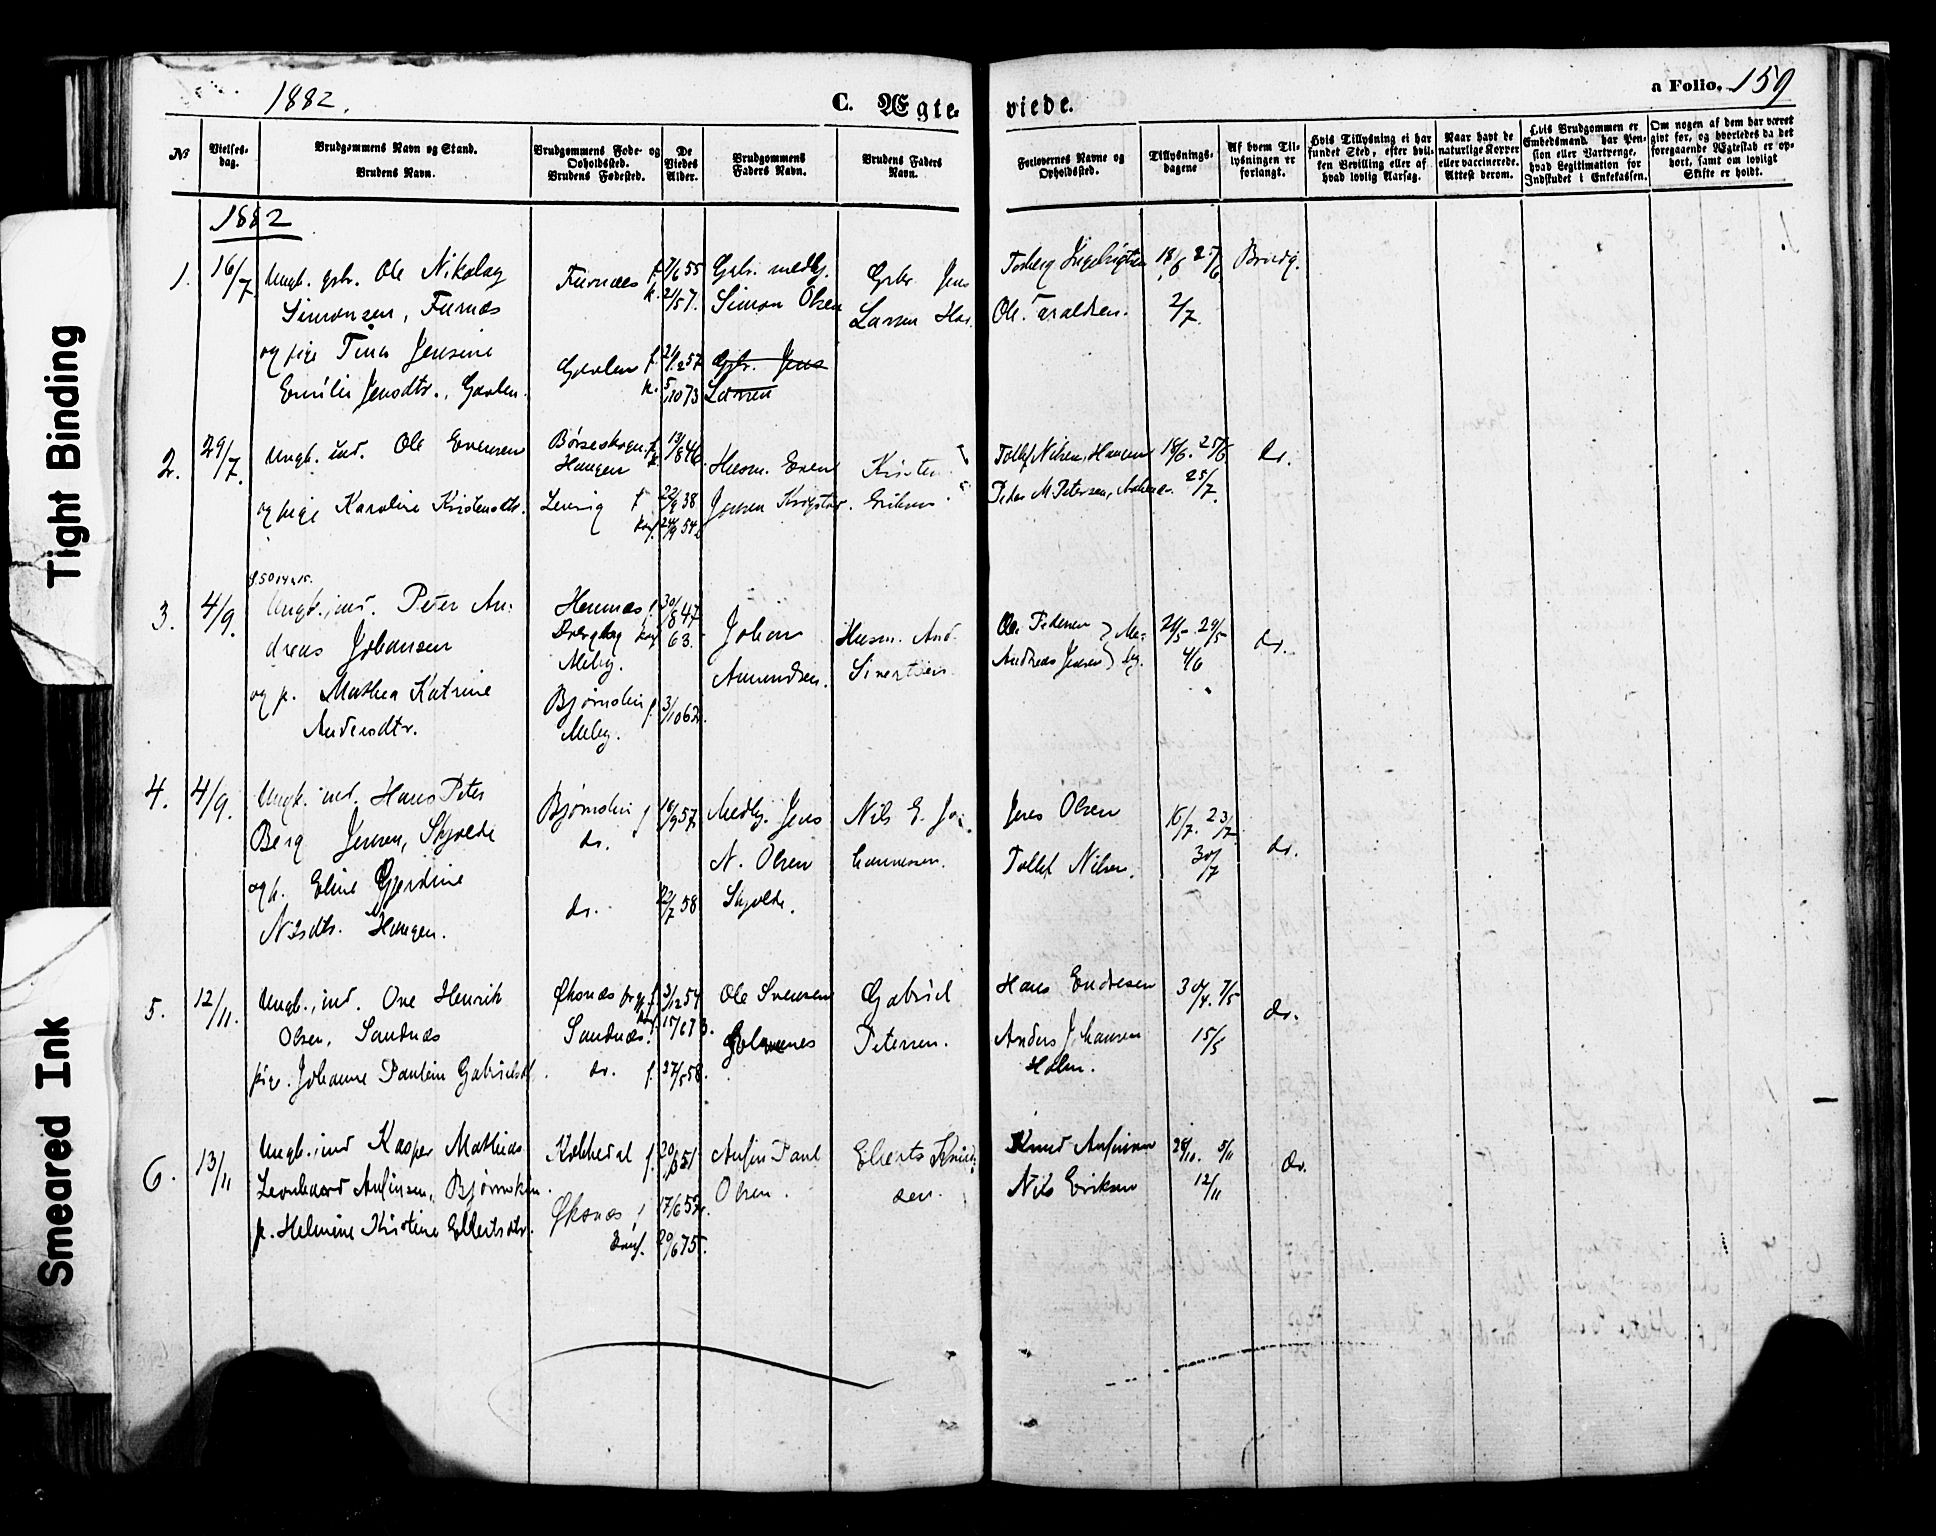 Tight Binding
Smeared Ink
1882.
C. Ægte-
viede.
a Folio. 159
No
Vielses-
dag.
Brudgommens Navn og Stand.
Brudens Navn.
Brudgommens Føde- og
Opholdssted.
Brudens Fødested.
De
Viedes
Alder.
Brudgommens
Faders Navn.
Brudens Faders
Navn.
Forlovernes Navne og
Opholdssted.
Tillysnings-
dagene
Af hvem Til-
lysningen er
forlangt.
Hvis Tillysning ei har
fundet Sted, efter hvil-
ken Bevilling eller af
hvad lovlig Aarsag.
Naar havt de
naturlige Kopper
eller vaccinerede.
Attest derom.
Hvis Brudgommen er
Embedsmand, har Pen-
sion eller Vartpenge,
hvad Legitimation for
Indskudet i Enkekassen.
Om nogen af dem har været
gift før, og hvorledes da det
foregaaende Ægteskab er op-
hørt, samt om lovligt
Skifte er holdt.
1882
1. 16/7
Ungk. gbr. Ole Nikolay
Simonsen, Furnæs
og pige Tina Jensine
Emilie Jensdtr., Gaulen.
Furnæs f. 1/6 55
k. 21/57.
Gaulen f. 21/12 57
k. 5/10 73
Gbr. medhj.
Simon Olsen
Gbr. Jens
Larsen
Gbr. Jens
Larsen
Torberg Ingebrigtsen
Ole Taraldsen.
18/6 25/6
2/7
Brudg.
2. 29/7
Ungk. ind. Ole Evensen
og pige Karoline Kristensdtr.
Børseskogn f.
Haugen
13/8 46
f 22/9 38
kof. 24/9 54
Husm. Even
Jensen
Kristen
Eriksen
Tollef Nilsen, Haugen
Peder M. Petersen,
18/6. 25/6.
25/7.
do.
3. 4/9.
Ungk., ind. Peter An-
dreas Johansen
og p. Mathea Katrine
Andersdtr.
Hennæs f. 30/8 47
kof 63.
Melby.
Bjørnskin f. 3/10 62.
Melby.
Johan
Amundsen.
Husm. And.
Sivertsen.
Ole Pedersen
Andreas Jensen
21/5. 29/5
4/6
do.
4. 4/9.
Ungk. ind. Hans Peter
Berg Jensen, Skjolde
og p. Eline Gjertine
Nilsdtr. Haugen.
Bjørnskin f 16/9 57.
do.
do. 22/7 58
Medhj. Jens
N. Olsen
Skjolde.
Nils E. Jo-
hannesen.
Jens Olsen
Tollef Nilsen.
16/7. 23/7
30/7
do.
5. 12/11.
Ungk., ind. Ove Henrik
Olsen, Sandnæs
pige. Johanne Pauline Gabrielsdtr.
Øksnæs f. 3/12 54
Sandnæs. 15/6 73.
do. f. 27/5 58.
Ole Svensen
Gabriel
Petersen.
Hans Endresen
Anders Johansen
Holm.
30/4. 7/5
15/5
do.
6. 13/11
Ungk., ind Kasper Mathias
Leonhard Anfinsen, Bjørnskin.
p. Helmine Kristine Ellertsdtr.
f. 20/3 51
Øksnæs f 17/6 57.
konf. 20/6 75.
Anfin Paul
Olsen.
Ellerts Knud-
sen.
Knud Anfinsen
Nils Eriksen
29/10. 5/11
12/11
do.